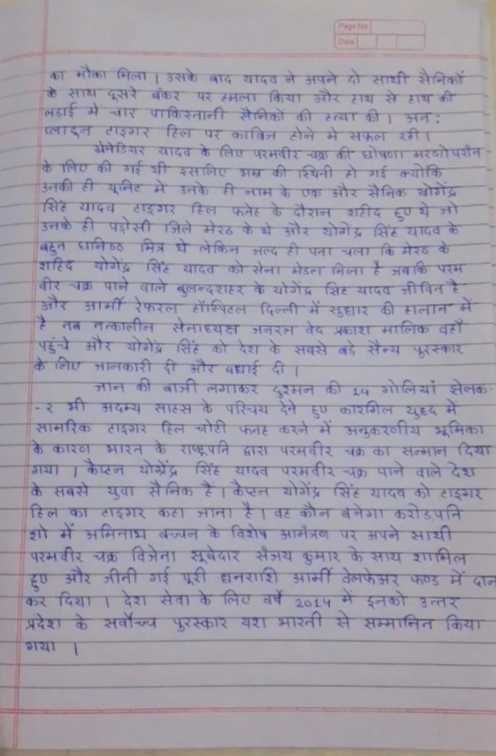 Page No.
Date
का मौका मिला। उसके बाद यादव ने अपने दो साथी सैनिकों
के साथ दूसरे बंकर पर हमला किया और हाथ से हाथ की
लड़ाई मे चार पाकिस्तानी सैनिकों की हत्या की। अत:
प्लाटून टाइगर हिल पर काबिज होने मे सफल रही।
ग्रेनेडियर यादव के लिए परमवीर चक्र की घोषणा मरणोपरांत
के लिए की गई थी इसलिए भ्रम की स्थिती हो गई क्योंकि
उनकी ही यूनिट मे उनके ही नाम के एक और सैनिक योगेंद्र
सिंह यादव टाइगर हिल फतेह के दौरान शहीद हुए थे जो
उनके ही पड़ोसी जिले मेरठ के थे और योगेंद्र सिंह यादव के
बहुत घनिष्ठ मित्र थे लेकिन जल्द ही पता चला कि मेरठ के
शहिद योगेंद्र सिंह यादव को सेना मेडल मिला है जबकि परम
वीर चक्र पाने वाले बुलन्दशहर के योगेंद्र सिंह यादव जीवित है
और आर्मी रेफरल हॉस्पिटल दिल्ली में सुधार की हालत में
है तब तत्कालीन सेनाध्यक्ष जनरल वेद प्रकाश मालिक वहाँ
पहुंचे और योगेंद्र सिंह को देश के सबसे बड़े सैन्य पुरस्कार
के लिए जानकारी दी और बधाई दी।
जान की बाजी लगाकर दुश्मन की 14 गोलियाँ झेलक-
-र भी अदम्य साहस के परिचय देते हुए कारगिल युद्द में
सामरिक टाइगर हिल चोटी फतह करने में अनुकरणीय भूमिका
के कारण भारत के राष्ट्रपति द्वारा परमवीर चक्र का सम्मान दिया
गया। कैप्टन योगेंद्र सिंह यादव परमवीर चक्र पाने वाले देश
के सबसे युवा सैनिक हैं। कैप्टन योगेंद्र सिंह यादव को टाइगर
हिल का टाइगर कहा जाता है। वह कौन बनेगा करोड़पति
शो में अमिताभ बच्चन के विशेष आमंत्रण पर अपने साथी
परमवीर चक्र विजेता सूबेदार संजय कुमार के साथ शामिल
हुए और जीती गई पूरी धनराशि आर्मी वेलफेअर फण्ड में दान
कर दिया। देश सेवा के लिए वर्ष 2014 में इनको उत्तर
प्रदेश के सर्वोच्च पुरस्कार यश भारती से सम्मानित किया
गया।